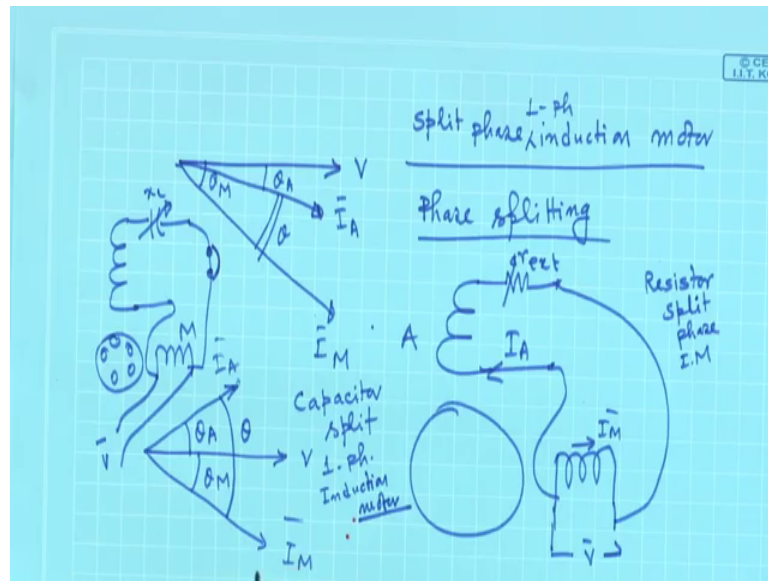 © CE
I.I.T. K
1-ph
Split phase induction motor
Phase splitting
V
θA
θM
ĪA
θ
ĪM
xc
M
ĪA
V̄
θA
θ
V
θM
ĪM
Capacitor
split
1-ph.
Induction
motor
rext
A
IA
ĪM
V̄
Resistor
split
phase
I.M